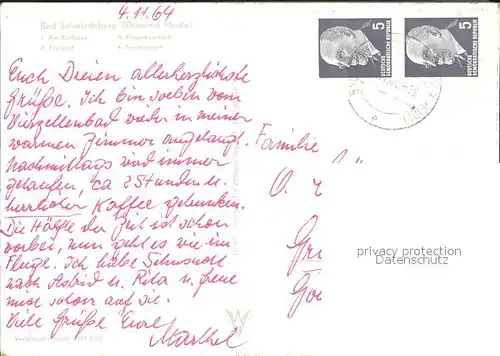 4.11.64
Bad Schmiedeberg (Dübener Heide)
1. Am Kurhaus 3. Eisenmoorbad
2. Freibad 4.
Euch Dreien allerherzlichste
Grüße. Ich bin soeben vom
Vierzellenbad wieder in meiner
warmen Zimmer angelangt.
Nachmittags wird immer
gelaufen, ca 2 Stunden u.
herrlicher Kaffee getrunken.
Die Hälfte der Zeit ist schon
vorbei, nun geht es wie im
Fluge. Ich habe Sehnsucht
nach Astrid u. Rita u. freue
mich schon auf sie.
Viele Grüße Eure
Marthel
5 DEUTSCHE DEMOKRATISCHE REPUBLIK
5 DEUTSCHE DEMOKRATISCHE REPUBLIK
Familie
privacy protection
Datenschutz